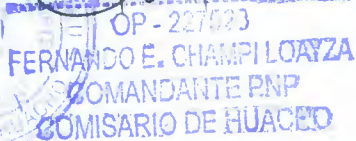 OP - 227023
FERNANDO E. CHAMPI LOAYZA
COMANDANTE PNP
COMISARIO DE HUACHO